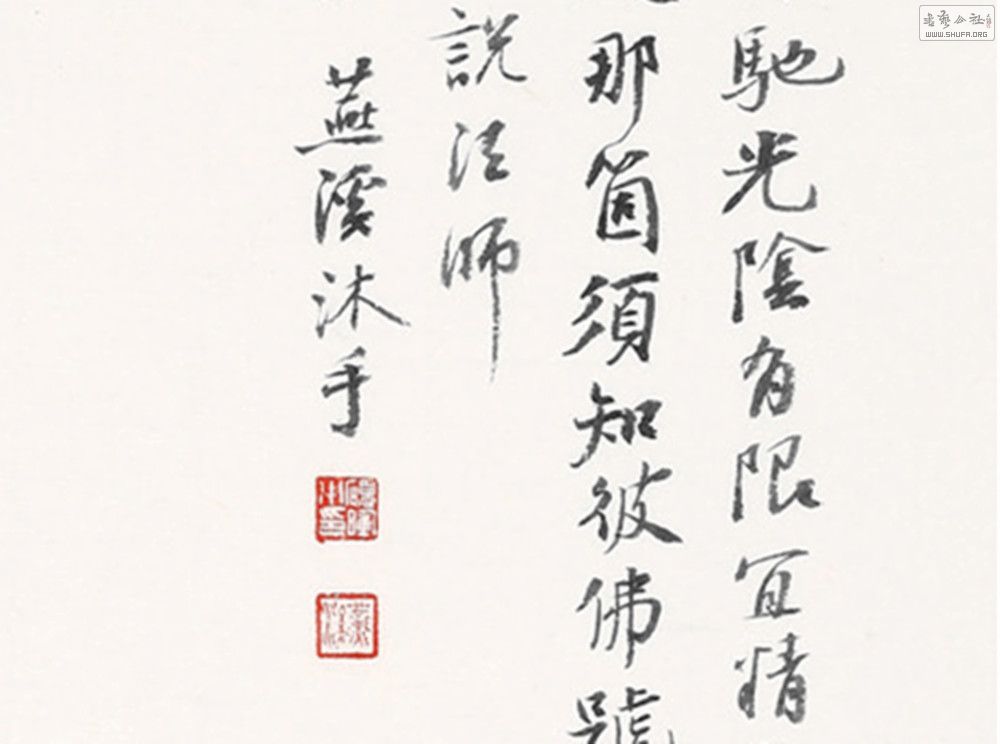 馳光陰有限宜精
那箇須知彼佛號
説法師
燕溪沐手
書藝公社
WWW.SHUFA.ORG